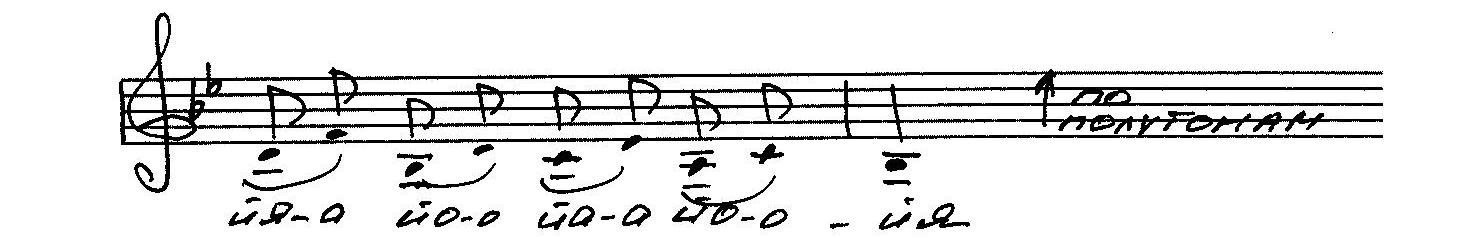 по
полутонам
йя-а йо-о йа-а йо-о - йя